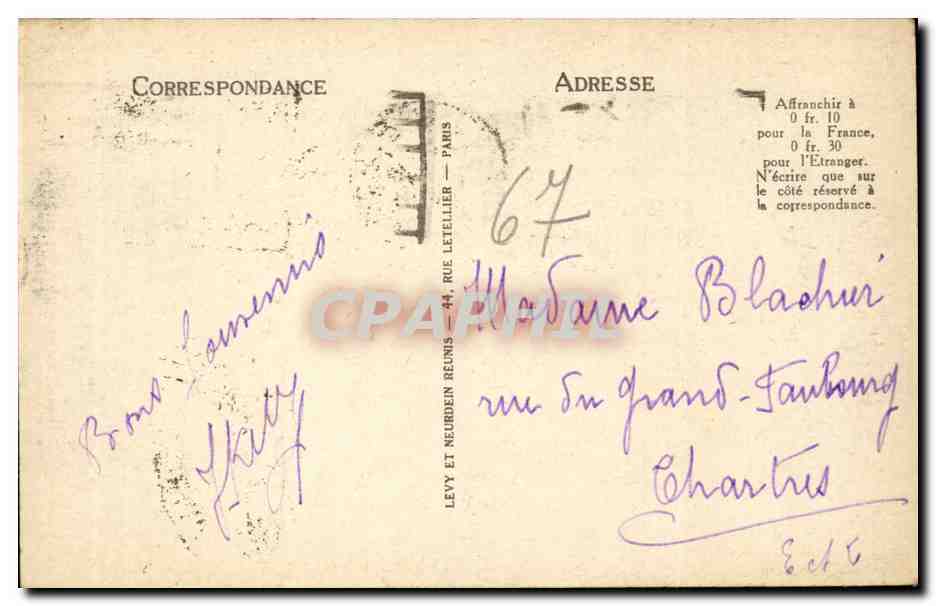 CORRESPONDANCE
ADRESSE
Affranchir à
0 fr. 10
pour la France,
0 fr. 30
pour l'Etranger.
N'écrire que sur
le côté réservé à
la correspondance.
67
LEVY ET NEURDEIN RÉUNIS — 44, RUE LETELLIER — PARIS
Bons Souvenirs
CPAPHIL
Madame
rue du Grand-Faubourg
Chartres
E et L